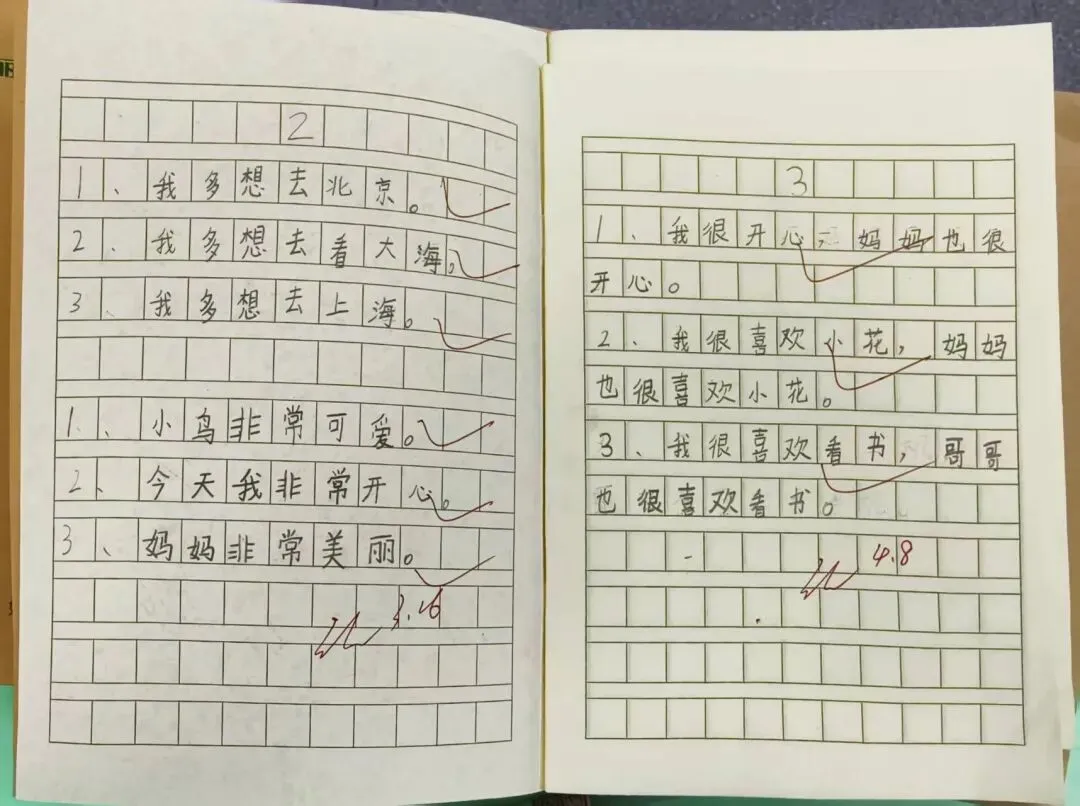 2
1、我多想去北京。
2、我多想去看大海。
3、我多想去上海。
1、小鸟非常可爱。
2、今天我非常开心。
3、妈妈非常美丽。
3.16
3
1、我很开心，妈妈也很
开心。
2、我很喜欢小花，妈妈
也很喜欢小花。
3、我很喜欢看书，哥哥
也很喜欢看书。
4.8